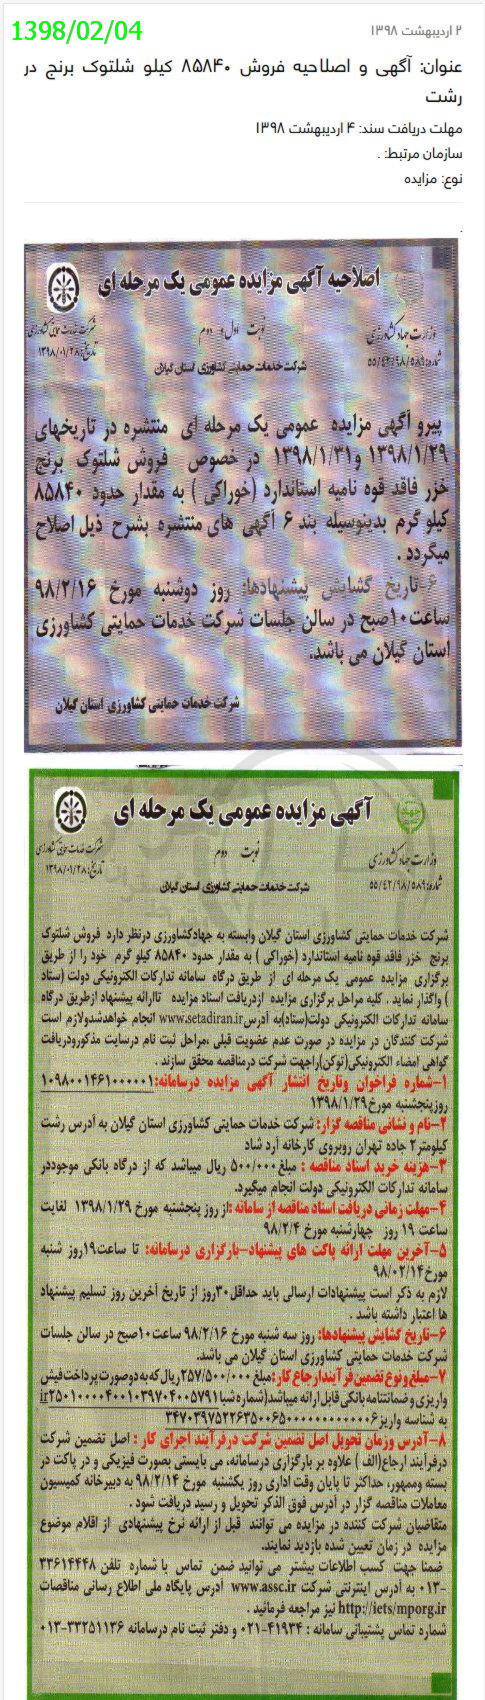 1398/02/04
۲ اردیبهشت ۱۳۹۸
عنوان: آگهی و اصلاحیه فروش ۸۵۸۴۰ کیلو شلتوک برنج در
رشت
مهلت دریافت سند: ۴ اردیبهشت ۱۳۹۸
سازمان مرتبط: .
نوع: مزایده
اصلاحیه آگهی مزایده عمومی یک مرحله ای
نوبت اول و دوم
وزارت جهاد کشاورزی
شماره: ۵۵/۴۲/۹۸/۵۸۹
شرکت خدمات حمایتی کشاورزی
تاریخ: ۱۳۹۸/۰۱/۲۸
شرکت خدمات حمایتی کشاورزی استان گیلان
پیرو آگهی مزایده عمومی یک مرحله ای منتشره در تاریخهای
۱۳۹۸/۱/۲۹ و ۱۳۹۸/۱/۳۱ در خصوص فروش شلتوک برنج
خزر فاقد قوه نامیه استاندارد (خوراکی ) به مقدار حدود ۸۵۸۴۰
کیلو گرم بدینوسیله بند ۶ آگهی های منتشره بشرح ذیل اصلاح
میگردد .
۶-تاریخ گشایش پیشنهادها: روز دوشنبه مورخ ۹۸/۲/۱۶
ساعت ۱۰صبح در سالن جلسات شرکت خدمات حمایتی کشاورزی
استان گیلان می باشد.
شرکت خدمات حمایتی کشاورزی استان گیلان
آگهی مزایده عمومی یک مرحله ای
نوبت دوم
وزارت جهاد کشاورزی
شماره: ۵۵/۴۲/۹۸/۵۸۹
شرکت خدمات حمایتی کشاورزی
تاریخ: ۱۳۹۸/۰۱/۲۸
شرکت خدمات حمایتی کشاورزی استان گیلان
شرکت خدمات حمایتی کشاورزی استان گیلان وابسته به جهادکشاورزی درنظر دارد فروش شلتوک
برنج خزر فاقد قوه نامیه استاندارد (خوراکی ) به مقدار حدود ۸۵۸۴۰ کیلو گرم خود را از طریق
برگزاری مزایده عمومی یک مرحله ای از طریق درگاه سامانه تدارکات الکترونیکی دولت (ستاد
) واگذار نماید . کلیه مراحل برگزاری مزایده ازدریافت اسناد مزایده تاارائه پیشنهاد ازطریق درگاه
سامانه تدارکات الکترونیکی دولت(ستاد)به آدرس www.setadiran.ir انجام خواهدشدولازم است
شرکت کنندگان در مزایده در صورت عدم عضویت قبلی ،مراحل ثبت نام درسایت مذکورودریافت
گواهی امضاء الکترونیکی(توکن)راجهت شرکت درمناقصه محقق سازند .
۱-شماره فراخوان وتاریخ انتشار آگهی مزایده درسامانه: ۱۰۹۸۰۰۱۴۶۱۰۰۰۰۰۱
روزپنجشنبه مورخ ۱۳۹۸/۱/۲۹
۲-نام و نشانی مناقصه گزار: شرکت خدمات حمایتی کشاورزی استان گیلان به آدرس رشت
کیلومتر۲ جاده تهران روبروی کارخانه آرد شاد
۳-هزینه خرید اسناد مناقصه : مبلغ ۵۰۰/۰۰۰ ریال میباشد که از درگاه بانکی موجوددر
سامانه تدارکات الکترونیکی دولت انجام میگیرد.
۴-مهلت زمانی دریافت اسناد مناقصه از سامانه :از روز پنجشنبه مورخ ۱۳۹۸/۱/۲۹ لغایت
ساعت ۱۹ روز چهارشنبه مورخ ۹۸/۲/۴
۵-آخرین مهلت ارائه پاکت های پیشنهاد-بارگزاری درسامانه: تا ساعت۱۹روز شنبه
مورخ ۹۸/۰۲/۱۴
لازم به ذکر است پیشنهادات ارسالی باید حداقل ۳۰روز از تاریخ آخرین روز تسلیم پیشنهاد
ها اعتبار داشته باشد .
۶-تاریخ گشایش پیشنهادها: روز سه شنبه مورخ ۹۸/۲/۱۶ ساعت ۱۰صبح در سالن جلسات
شرکت خدمات حمایتی کشاورزی استان گیلان می باشد.
۷-مبلغ ونوع تضمین فرآیندارجاع کار: مبلغ ۲۵۷/۵۰۰/۰۰۰ریال که به دوصورت پرداخت فیش
واریزی وضمانتنامه بانکی قابل ارائه میباشد(شماره شبا ir۲۵۰۱۰۰۰۰۴۰۰۱۰۳۹۷۰۴۰۰۵۷۹۱
به شناسه واریز ۳۴۷۰۳۹۷۵۲۲۶۳۵۰۰۶۵۰۰۰۰۰۰۰۰۰۰۰۰۶
۸-آدرس وزمان تحویل اصل تضمین شرکت درفرآیند اجرای کار : اصل تضمین شرکت
درفرآیند ارجاع(الف ) علاوه بر بارگزاری درسامانه، می بایستی بصورت فیزیکی و در پاکت در
بسته وممهور، حداکثر تا پایان وقت اداری روز یکشنبه مورخ ۹۸/۲/۱۴ به دبیرخانه کمیسیون
معاملات مناقصه گزار در آدرس فوق الذکر تحویل و رسید دریافت شود .
متقاضیان شرکت کننده در مزایده می توانند قبل از ارائه نرخ پیشنهادی از اقلام موضوع
مزایده در زمان تعیین شده بازدید نمایند.
ضمنا جهت کسب اطلاعات بیشتر می توانید ضمن تماس با شماره تلفن ۳۳۶۱۴۴۴۸
-۰۱۳ به آدرس اینترنتی شرکت www.assc.ir آدرس پایگاه ملی اطلاع رسانی مناقصات
http://iets/mporg.ir نیز مراجعه فرمائید .
شماره تماس پشتیبانی سامانه : ۴۱۹۳۴-۰۲۱ و دفتر ثبت نام درسامانه ۳۳۲۵۱۱۳۶-۰۱۳